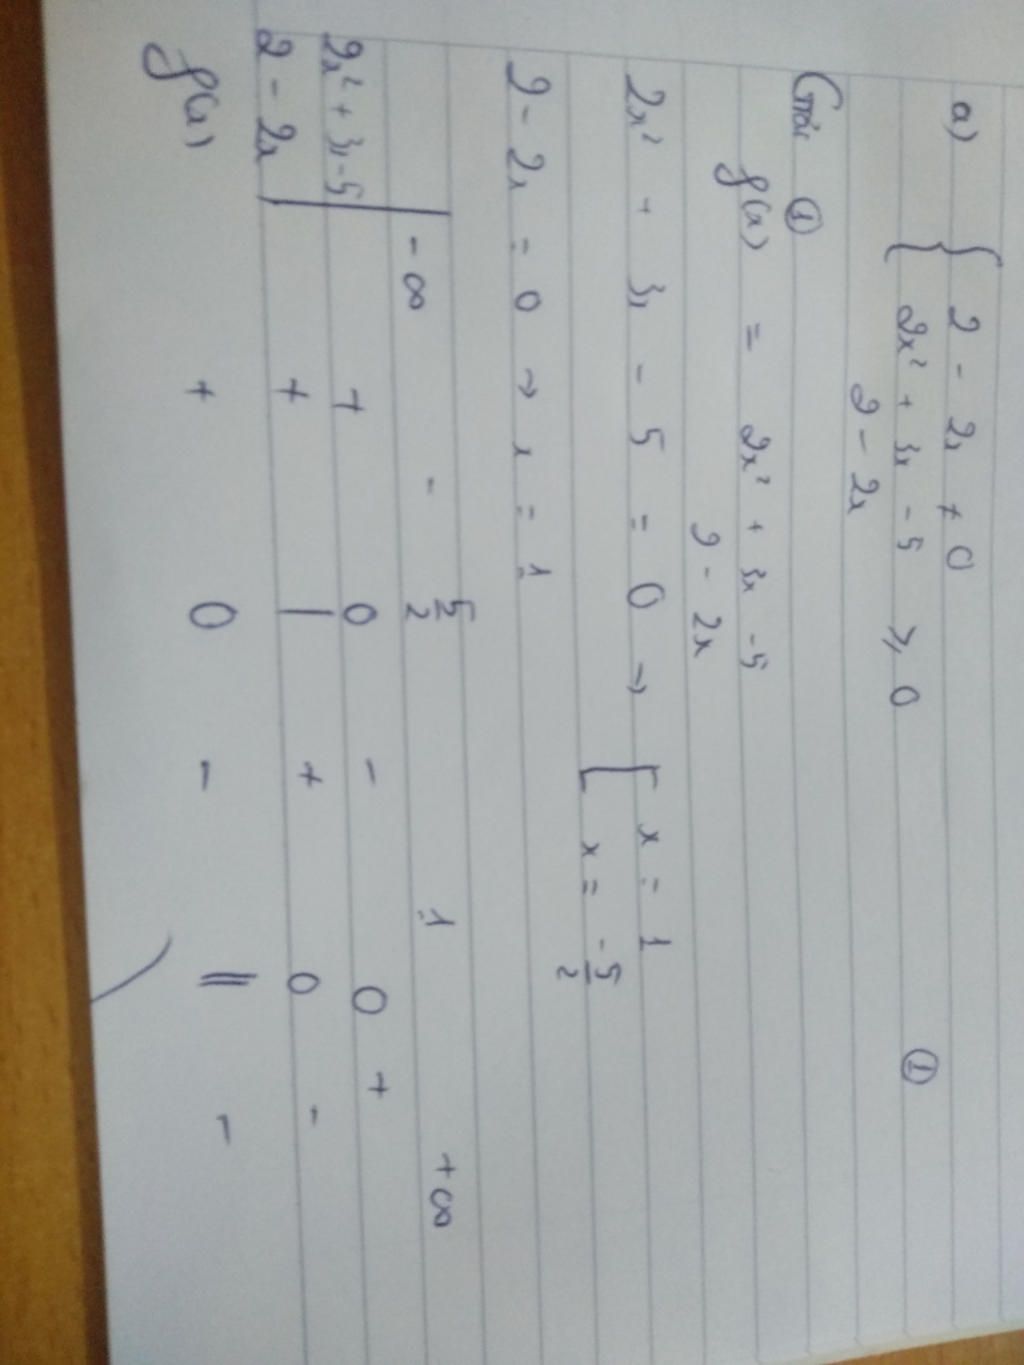 a) { 2 - 2x ≠ 0
2x² + 3x - 5 / 2 - 2x ≥ 0 ①
Giải ①
f(x) = 2x² + 3x - 5 / 2 - 2x
2x² + 3x - 5 = 0 → [ x = 1
x = -5/2
2 - 2x = 0 → x = 1
-∞ -5/2 1 +∞
2x² + 3x - 5 | + 0 - 0 +
2 - 2x | + | + 0 -
f(x) + 0 - || -